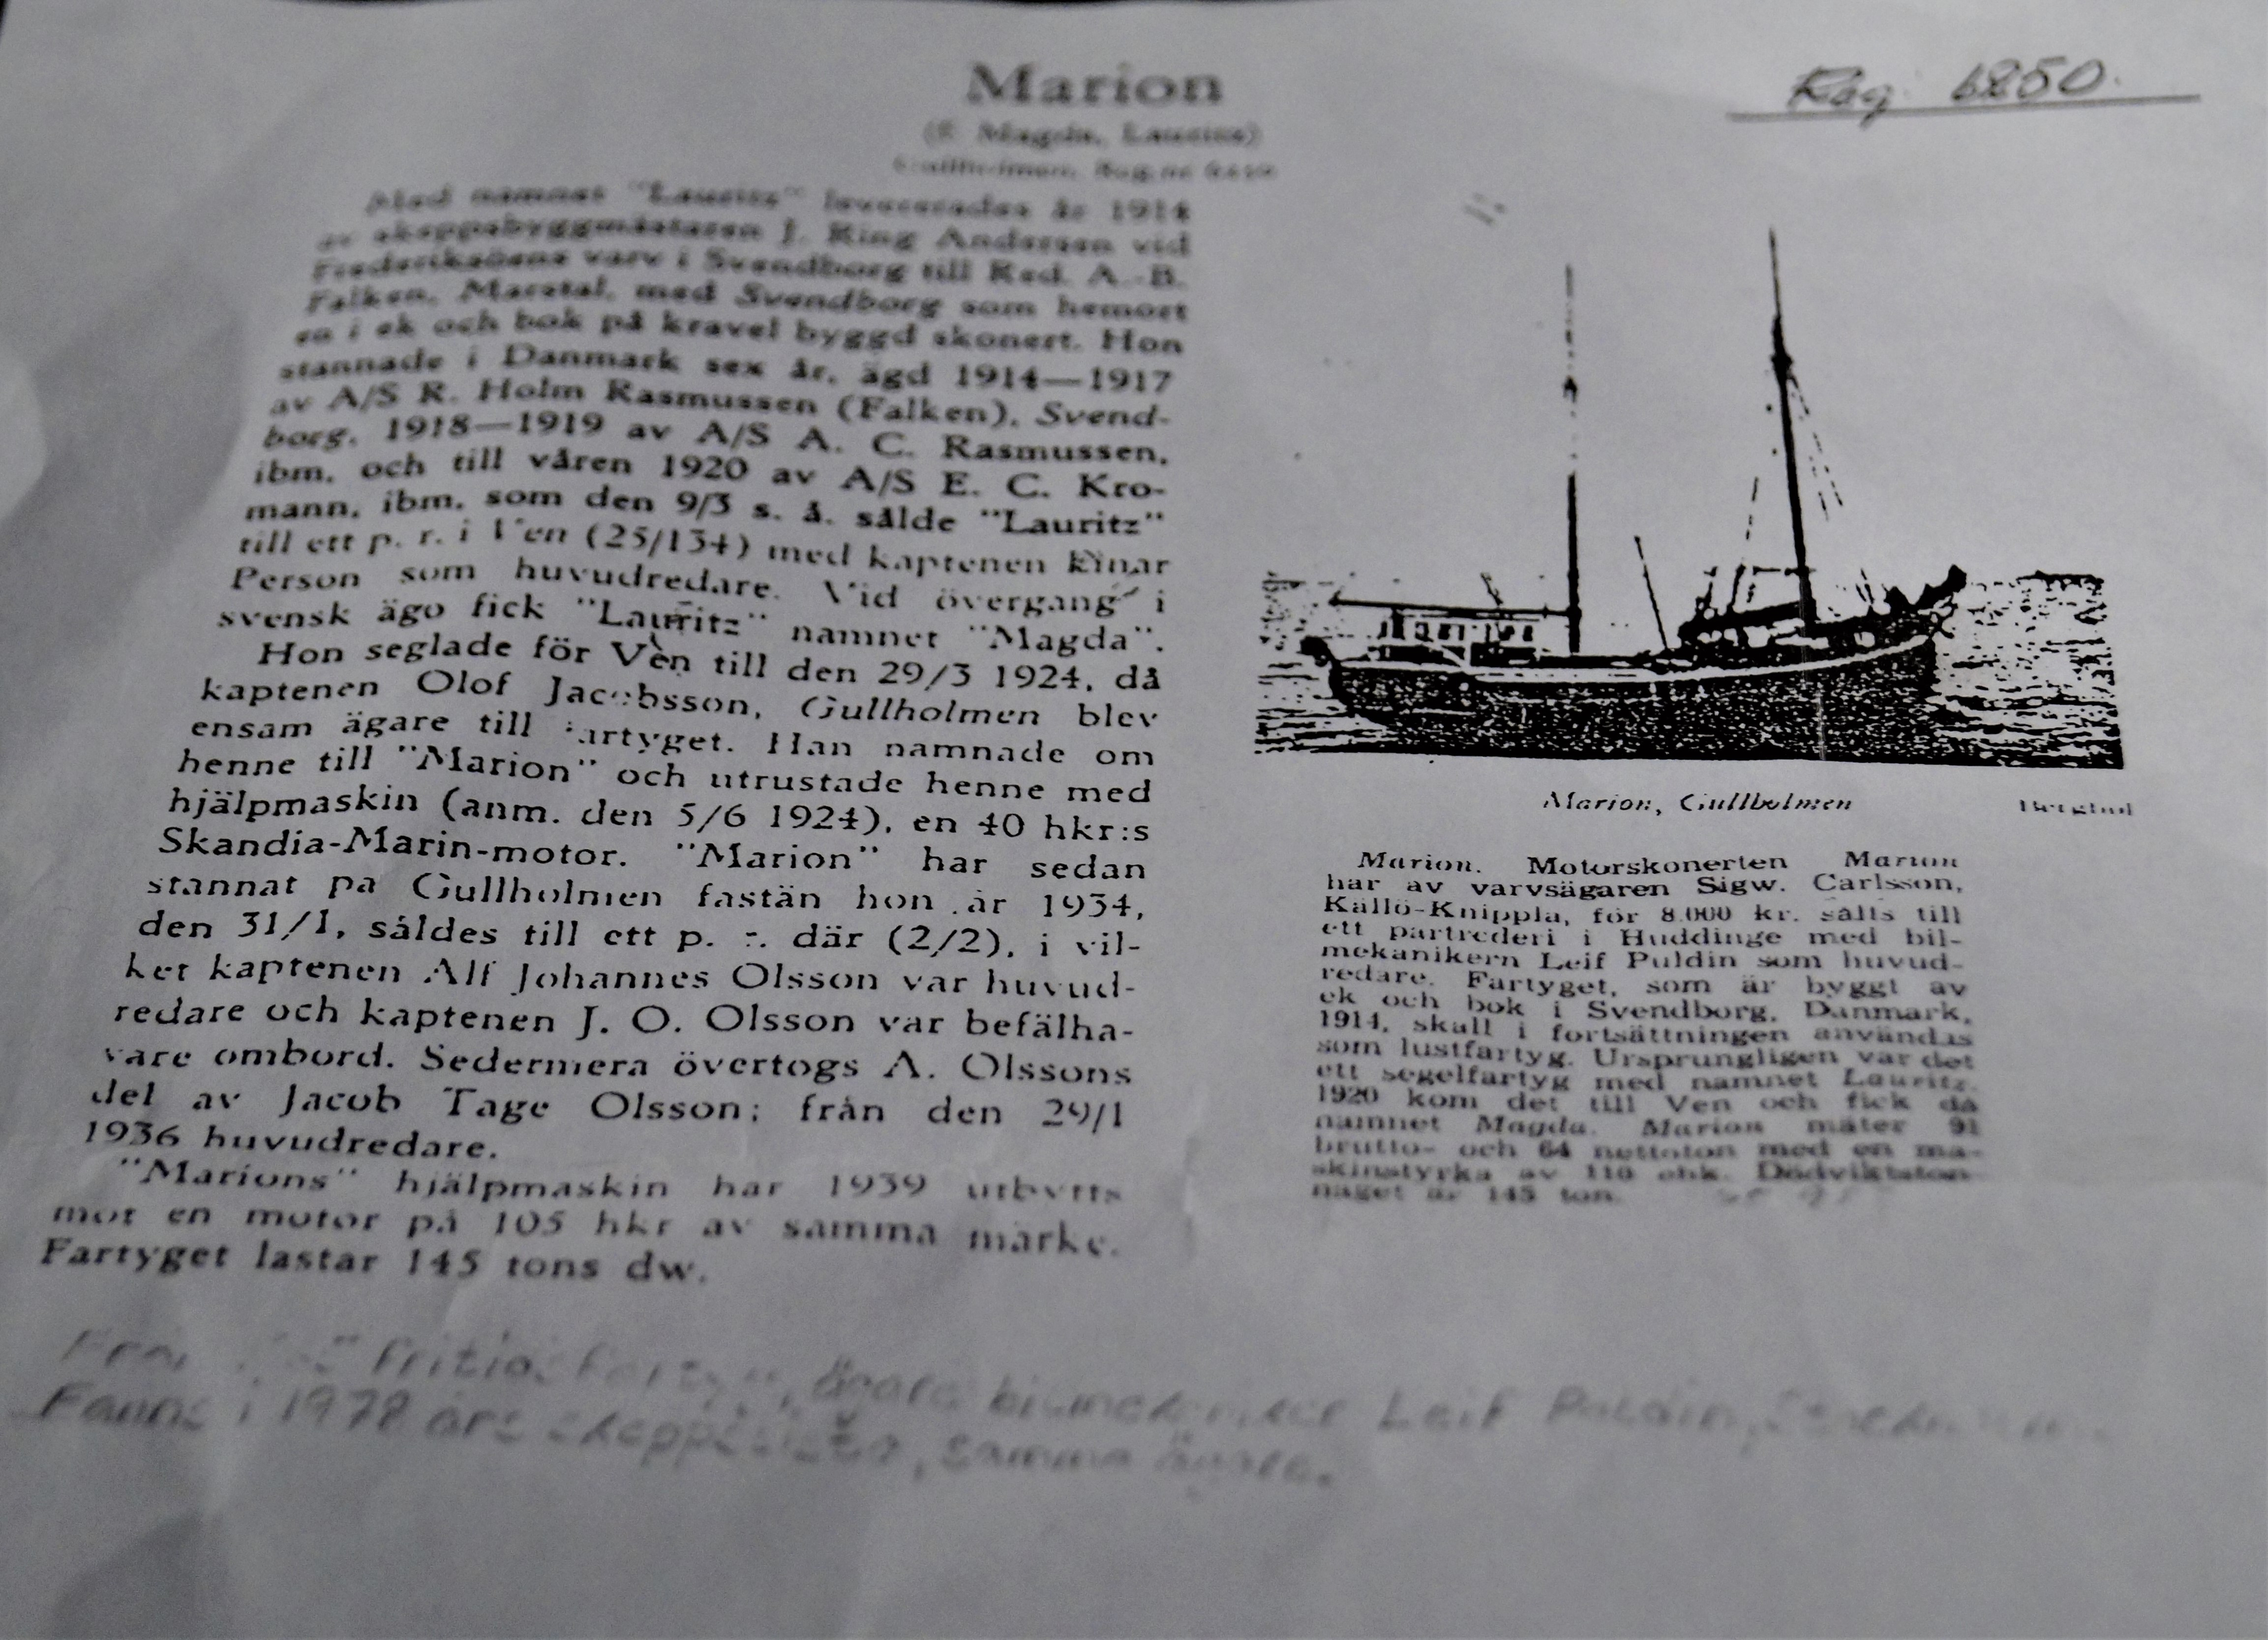 Marion
Reg 6850.
(F. Magda, Lauritz)
Gullholmen. Reg.nr
Med namnet "Lauritz" levererades år 1914
av skeppsbyggmästaren J. Ring Andersen vid
Frederiksöens varv i Svendborg till Red. A.-B.
Falken, Marstal, med Svendborg som hemort
en i ek och bok på kravel byggd skonert. Hon
stannade i Danmark sex år, ägd 1914—1917
av A/S R. Holm Rasmussen (Falken), Svend-
borg, 1918—1919 av A/S A. C. Rasmussen,
ibm, och till våren 1920 av A/S E. C. Kro-
mann, ibm, som den 9/3 s. å. sålde "Lauritz"
till ett p. r. i Ven (25/134) med kaptenen Einar
Person som huvudredare. Vid övergång i
svensk ägo fick "Lauritz" namnet "Magda".
Hon seglade för Ven till den 29/3 1924, då
kaptenen Olof Jacobsson, Gullholmen blev
ensam ägare till fartyget. Han namnade om
henne till "Marion" och utrustade henne med
hjälpmaskin (anm. den 5/6 1924), en 40 hkr:s
Skandia-Marin-motor. "Marion" har sedan
stannat på Gullholmen fastän hon år 1934,
den 31/1, såldes till ett p. r. där (2/2), i vil-
ket kaptenen Alf Johannes Olsson var huvud-
redare och kaptenen J. O. Olsson var befälha-
vare ombord. Sedermera övertogs A. Olssons
del av Jacob Tage Olsson; från den 29/1
1936 huvudredare.
"Marions" hjälpmaskin har 1939 utbytts
mot en motor på 105 hkr av samma märke.
Fartyget lastar 145 tons dw.
Marion, Gullholmen
Marion. Motorskonerten Marion
har av varvsägaren Sigw. Carlsson,
Källö-Knippla, för 8.000 kr. sålts till
ett partrederi i Huddinge med bil-
mekanikern Leif Puldin som huvud-
redare. Fartyget, som är byggt av
ek och bok i Svendborg, Danmark,
1914, skall i fortsättningen användas
som lustfartyg. Ursprungligen var det
ett segelfartyg med namnet Lauritz.
1920 kom det till Ven och fick då
namnet Magda. Marion mäter 91
brutto- och 64 nettoton med en ma-
skinstyrka av 110 ehk. Dödviktston-
naget är 145 ton.
Fritids ägare Leif Puldin,
Fanns i 1978 års skeppslista, samma ägare.